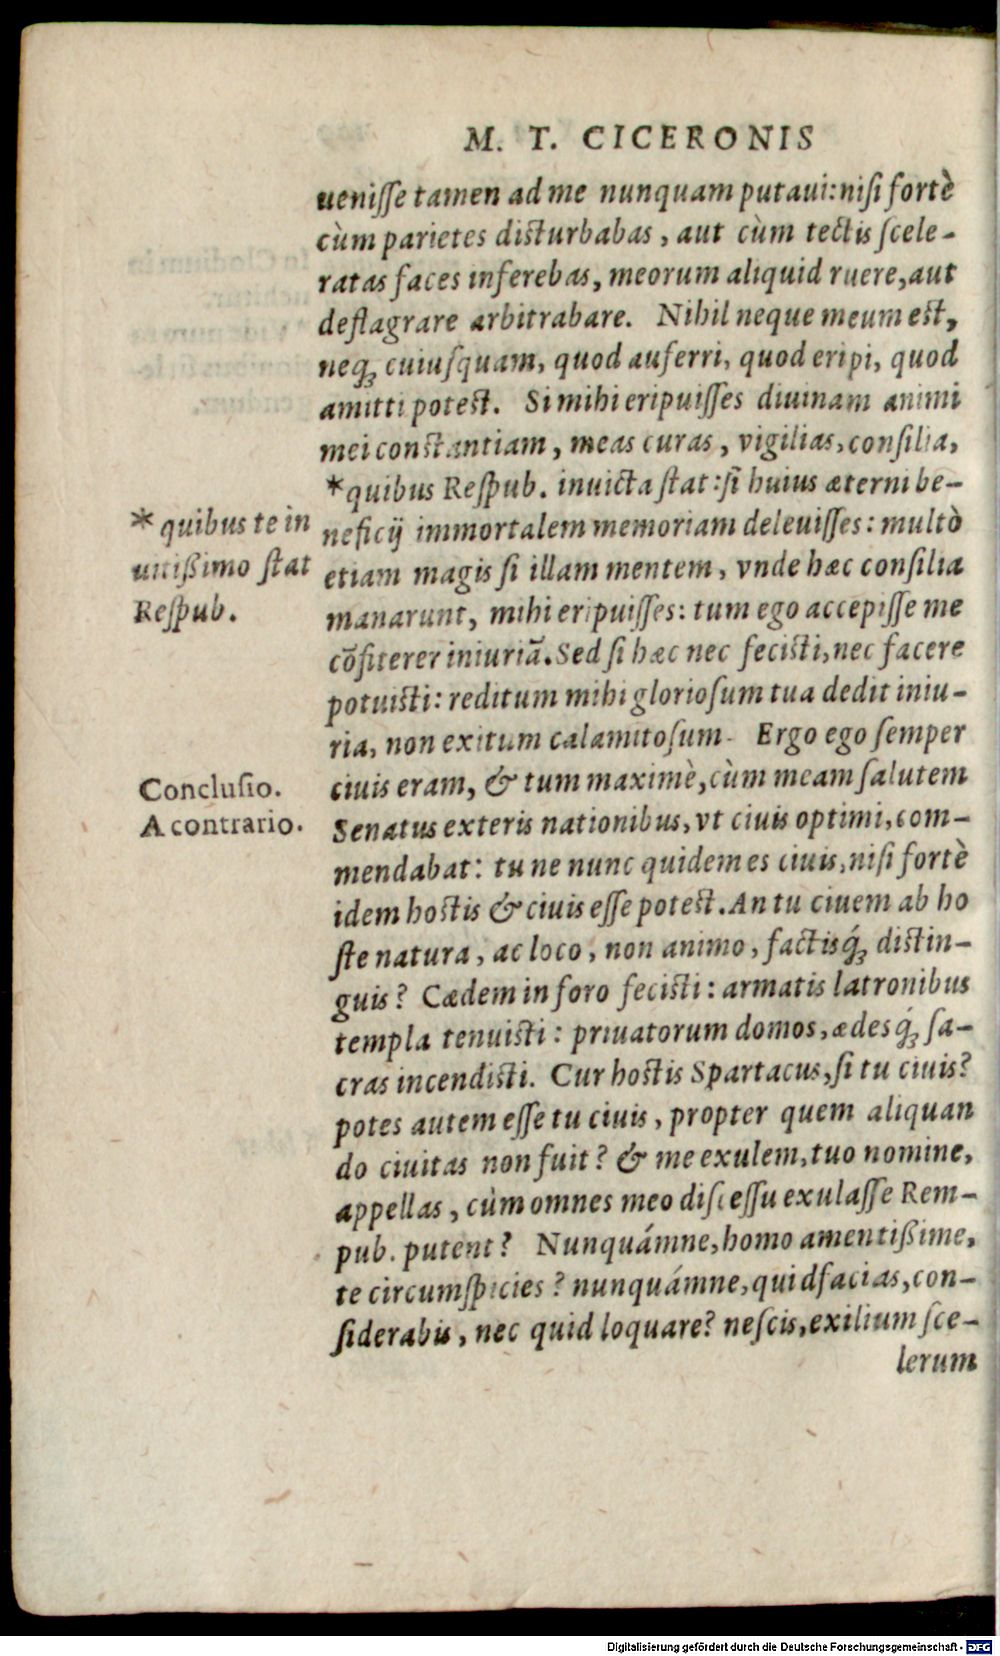 M. T. CICERONIS
ueniſſe tamen ad me nunquam putaui: niſi fortè
cùm parietes diſturbabas, aut cùm tectis ſcele-
ratas faces inferebas, meorum aliquid ruere, aut
deflagrare arbitrabare. Nihil neque meum eſt,
neq́ꝫ cuiuſquam, quod auferri, quod eripi, quod
amitti poteſt. Si mihi eripuiſſes diuinam animi
mei conſtantiam, meas curas, vigilias, conſilia,
*quibus Reſpub. inuicta ſtat: ſi huius æterni be-
neficij immortalem memoriam deleuiſſes: multò
etiam magis ſi illam mentem, vnde hæc conſilia
manarunt, mihi eripuiſſes: tum ego accepiſſe me
cõfiterer iniuriã. Sed ſi hæc nec feciſti, nec facere
potuiſti: reditum mihi glorioſum tua dedit iniu-
ria, non exitum calamitoſum. Ergo ego ſemper
ciuis eram, & tum maximè, cùm meam ſalutem
Senatus exteris nationibus, vt ciuis optimi, com-
mendabat: tu ne nunc quidem es ciuis, niſi fortè
idem hoſtis & ciuis eſſe poteſt. An tu ciuem ab ho
ſte natura, ac loco, non animo, factisq́ꝫ diſtin-
guis? Cædem in foro feciſti: armatis latronibus
templa tenuiſti: priuatorum domos, ædesq́ꝫ ſa-
cras incendiſti. Cur hoſtis Spartacus, ſi tu ciuis?
potes autem eſſe tu ciuis, propter quem aliquan
do ciuitas non fuit? & me exulem, tuo nomine,
appellas, cùm omnes meo diſceſſu exulaſſe Rem-
pub. putent? Nunquámne, homo amentißime,
te circumſpicies? nunquámne, quid facias, con-
ſiderabis, nec quid loquare? neſcis, exilium ſce-
lerum
* quibus te in
uitißimo ſtat
Reſpub.
Concluſio.
A contrario.
Digitalisierung gefördert durch die Deutsche Forschungsgemeinschaft - DFG